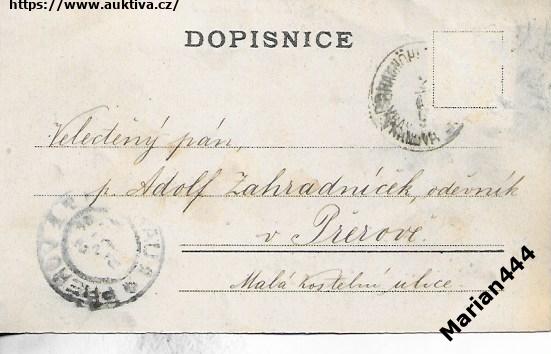 https://www.auktiva.cz/
DOPISNICE
Veleděný pán,
p. Adolf Zahradníček, oděvník
v Přerově.
Malá kostelní ulice.
Marian444